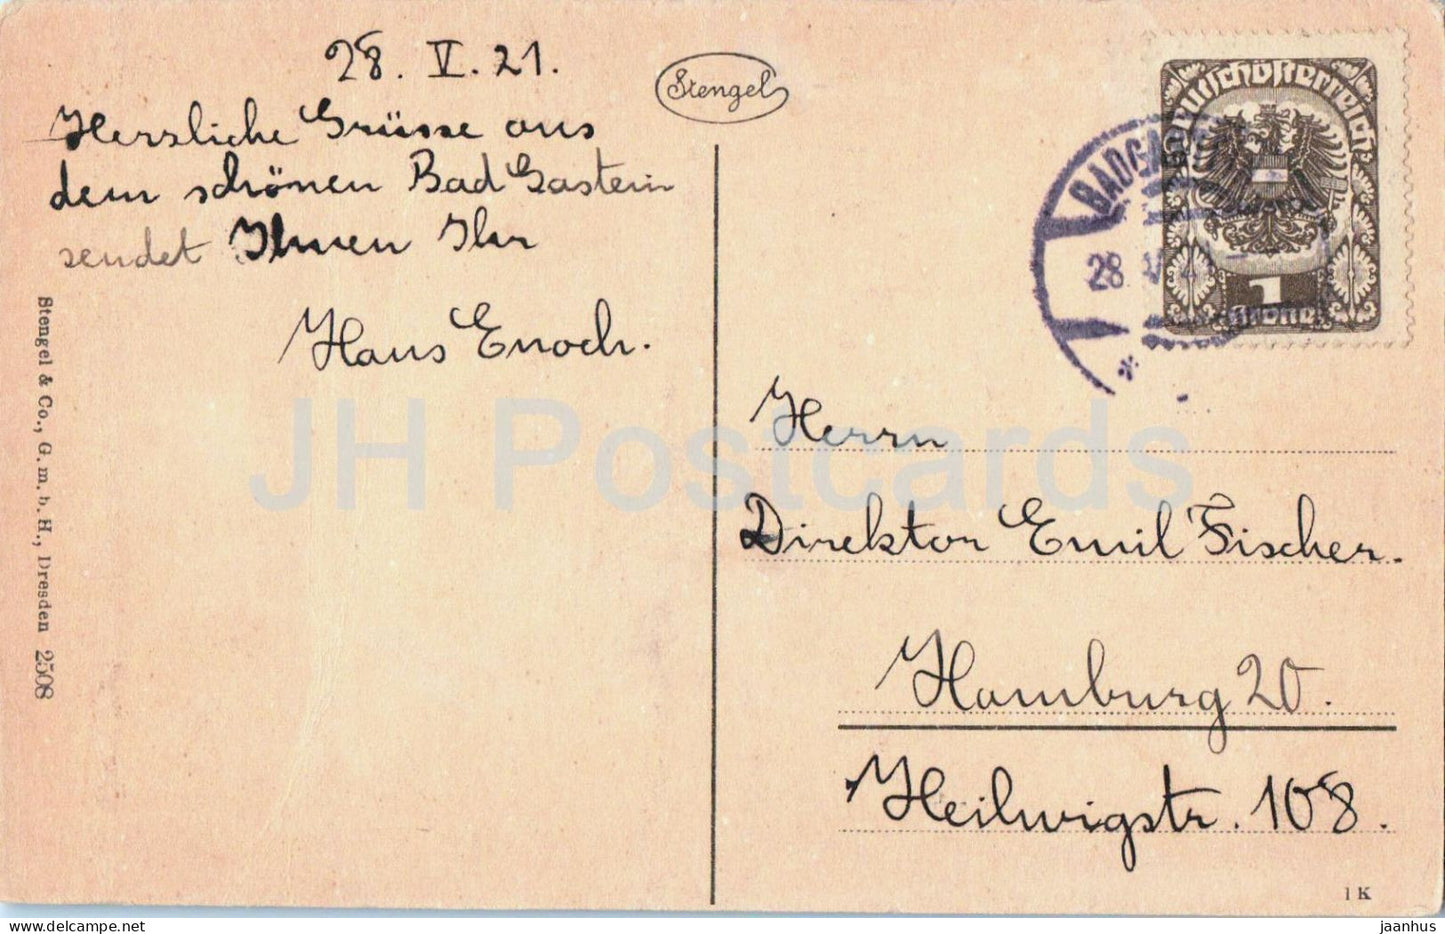 28. V. 21.
Herzliche Grüsse aus
dem schönen Bad Gastein
sendet Ihnen Ihr
Hans Enoch.
Stengel & Co., G. m. b. H., Dresden 2508
Stengel
Deutschösterreich
1
Krone
BADGA
28. V. 2
*
Herrn
Direktor Emil Fischer.
Hamburg 20.
Heilwigstr. 108.
1 K
JH Postcards
jaanhus